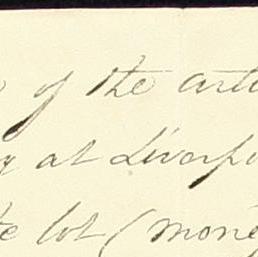 of the arti
at Liverpo
lot (mone